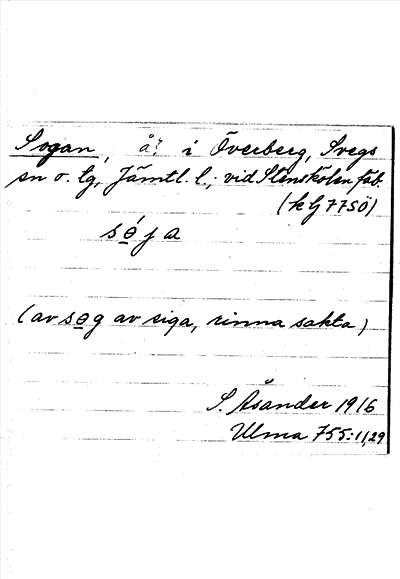 Sogan, å? i Överberg, Svegs
sn o. tg, Jämtl. l.; vid Stenskölen fäb.
(k bj 77SÖ)
sǿja
(av søg av siga, rinna sakta)
S. Åsander 1916
Ulma 755:11,29